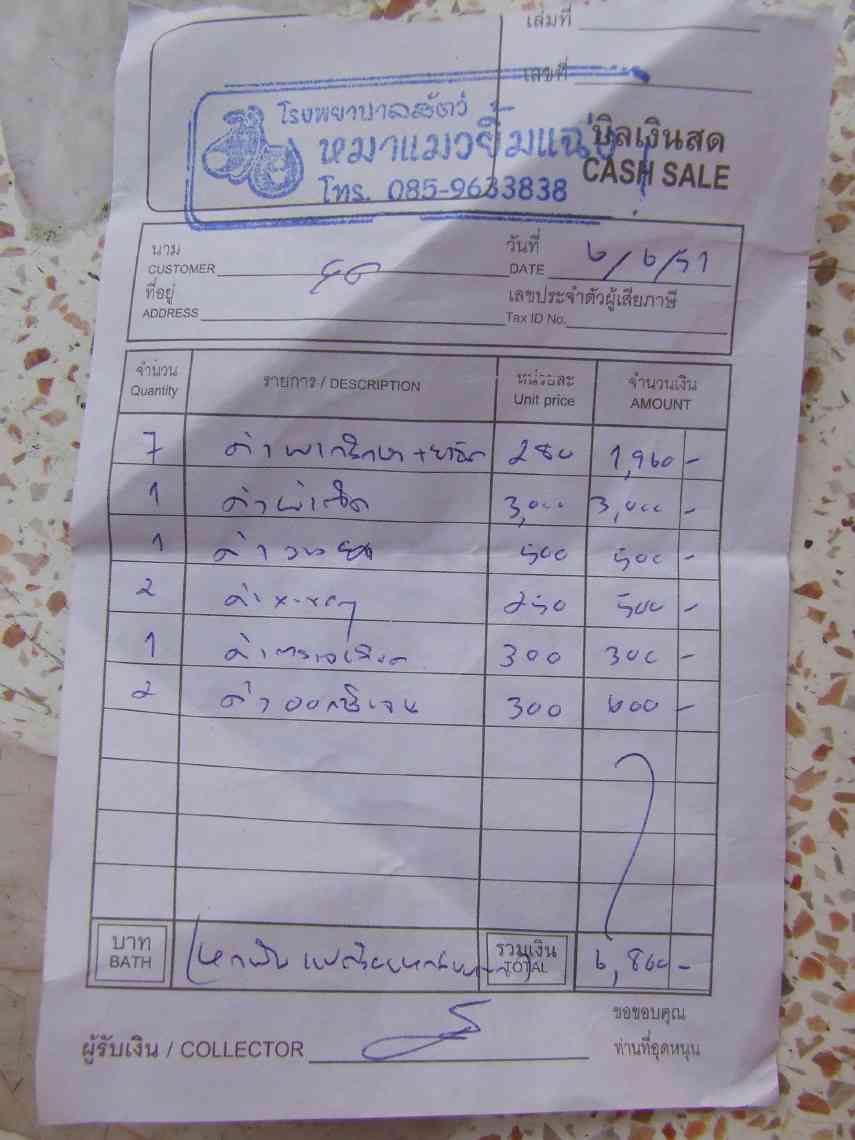 เล่มที่
เลขที่
โรงพยาบาลสัตว์
หมาแมวยิ้มแฉ่ง
โทร. 085-9633838
บิลเงินสด
CASH SALE
นาม
CUSTOMER
วันที่
DATE ๖/๖/๕๗
ที่อยู่
ADDRESS
เลขประจำตัวผู้เสียภาษี
Tax ID No.
จำนวน รายการ / DESCRIPTION หน่วยละ จำนวนเงิน
Quantity Unit price AMOUNT
7 ค่าพักรักษา + ยาฉีด 280 1,960 -
1 ค่าผ่าตัด 3,000 3,000 -
1 ค่าวางยา 500 500 -
2 ค่า x-ray 250 500 -
1 ค่าตรวจเลือด 300 300 -
2 ค่าออกซิเจน 300 ๖00 -
บาท (หกพันแปดร้อยหกสิบบาท) รวมเงิน ๖,8๖0 -
BATH TOTAL
ผู้รับเงิน / COLLECTOR
ขอขอบคุณ
ท่านที่อุดหนุน